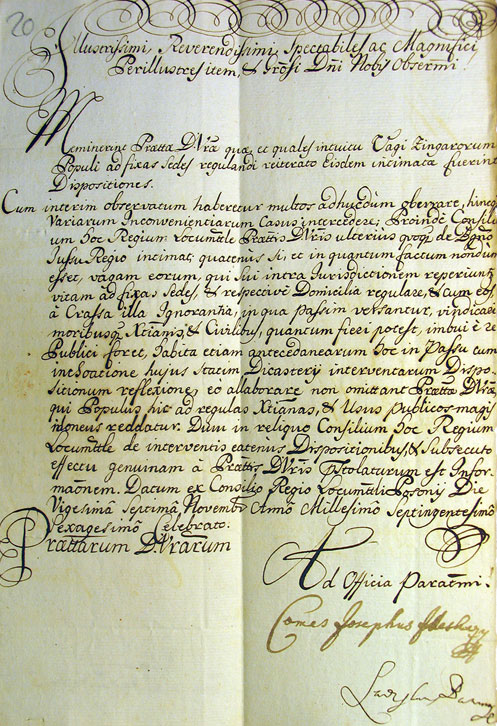 20
Illustrissimi, Reverendissimi, Spectabiles ac Magnifici
Perillustres item, & Grosi Dni Nobis Obsermi.
Meminerint Prættæ D Vræ quæ, et quales intuitu Vagi Zingarorum
Populi ad fixas Sedes regulandi reiterato Eisdem intimatæ fuerint
Dispositiones.
Cum interim observatum haberetur multos adhucdum oberrare, hincq
Variarum Inconvenientiarum Casus intercedere; Proinde Consili-
um hoc Regium Locumtle Prættis D Vris ulterius quoq de Bgno
Jussu Regio intimat; quatenus si, et in quantum factum nondum
esset, vagam eorum, qui Sui intra Jurisdictionem reperiunt
vitam ad fixas Sedes, & respective Domicilia regulare, & cum eos
à Crassa illa Ignorantia, in qua passim versantur, vindicari
moribusq Xtianis, & Civilibus, quantum fieri potest, imbui è re
Publici foret, habita etiam antecedanearum hoc in Passu cum
inchoatione hujus statum Dicasterij interventarum Dispo-
sitionum reflexione, eò allaborare non omittant Prættæ D Vræ,
qui Populus hic ad regulas Xtianas, & Usus publicos magis
idoneus reddatur. Dum in reliquo Consilium hoc Regium
Locumtle de interventis eatenus Dispositionibus, & subsecuto
effectu genuinam à Prættis D Vris præstolaturum est Infor-
maonem. Datum ex Consilio Regio Locumtli Posonij Die
Vigesimâ Septimâ Novembr Anno Millesimo Septingentesimo
Sexagesimò celebrato.
Prættarum D. Vrarum
Ad Officia Paratmi.
Comes Josephus Illeshazy
Ladislaus